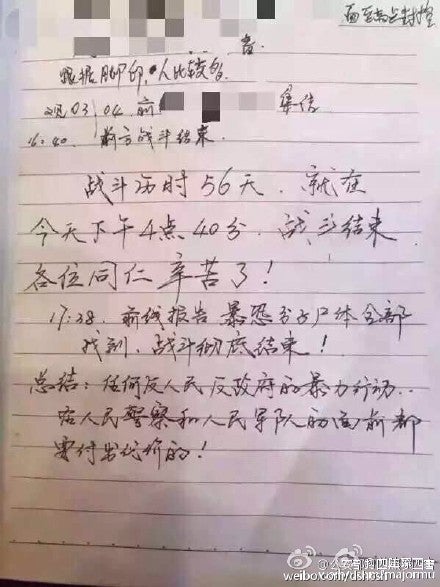 音.
根据脚印,人比较多
03/04. 前
集结
16:40. 前方战斗结束.
战斗历时56天. 就在
今天下午4点40分. 战斗结束
各位同仁辛苦了!
17:38. 前线报告 暴恐分子尸体全部
找到. 战斗彻底结束!
总结: 任何反人民反政府的暴力行动..
在人民警察和人民军队的面前都
要付出代价的!
weibo.com/dshps/majormu